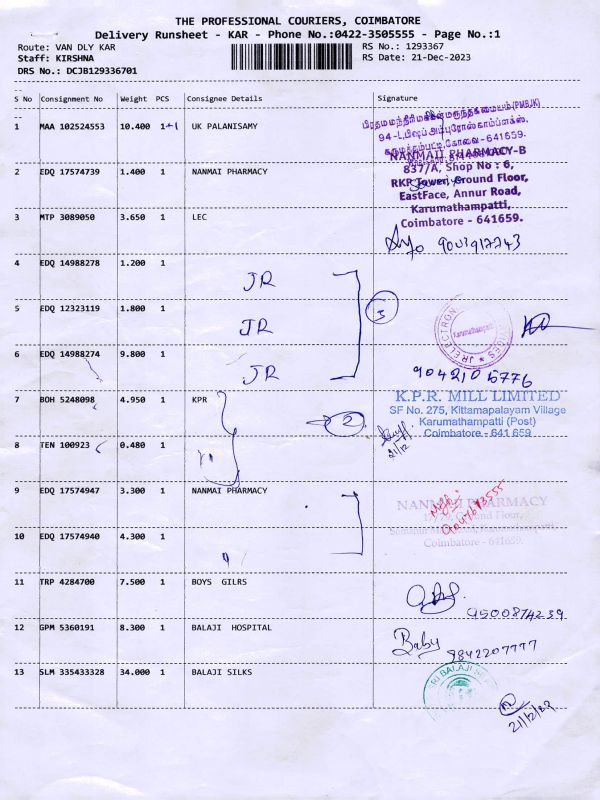 THE PROFESSIONAL COURIERS, COIMBATORE
Delivery Runsheet - KAR - Phone No.:0422-3505555 - Page No.:1
Route: VAN DLY KAR RS No.: 1293367
Staff: KIRSHNA RS Date: 21-Dec-2023
DRS No.: DCJB129336701
S No Consignment No Weight PCS Consignee Details Signature
1 MAA 102524553 10.400 1+1 UK PALANISAMY
94-L,
641659.
NANMAII PHARMACY-B
2 EDQ 17574739 1.400 1 NANMAI PHARMACY
837/A, Shop No : 6,
RKP Tower, Ground Floor,
EastFace, Annur Road,
Karumathampatti,
Coimbatore - 641659.
3 MTP 3089050 3.650 1 LEC
4 EDQ 14988278 1.200 1 JR
5 EDQ 12323119 1.800 1 JR 3
Karumathampatti
JR ELECTRON
6 EDQ 14988274 9.800 1 JR
9042105776
7 BOH 5248098 4.950 1 KPR 2
K.P.R. MILL LIMITED
SF No. 275, Kittamapalayam Village
Karumathampatti (Post)
Coimbatore - 641 659
21/12
8 TEN 100923 0.480 1 "
9 EDQ 17574947 3.300 1 NANMAI PHARMACY
NANMAII PHARMACY
Ground Floor,
Coimbatore - 641659.
10 EDQ 17574940 4.300 1 "
11 TRP 4284700 7.500 1 BOYS GILRS
9500874239
12 GPM 5360191 8.300 1 BALAJI HOSPITAL
Baby 9842207777
13 SLM 335433328 34.000 1 BALAJI SILKS
RI BALAJI
21/12/23